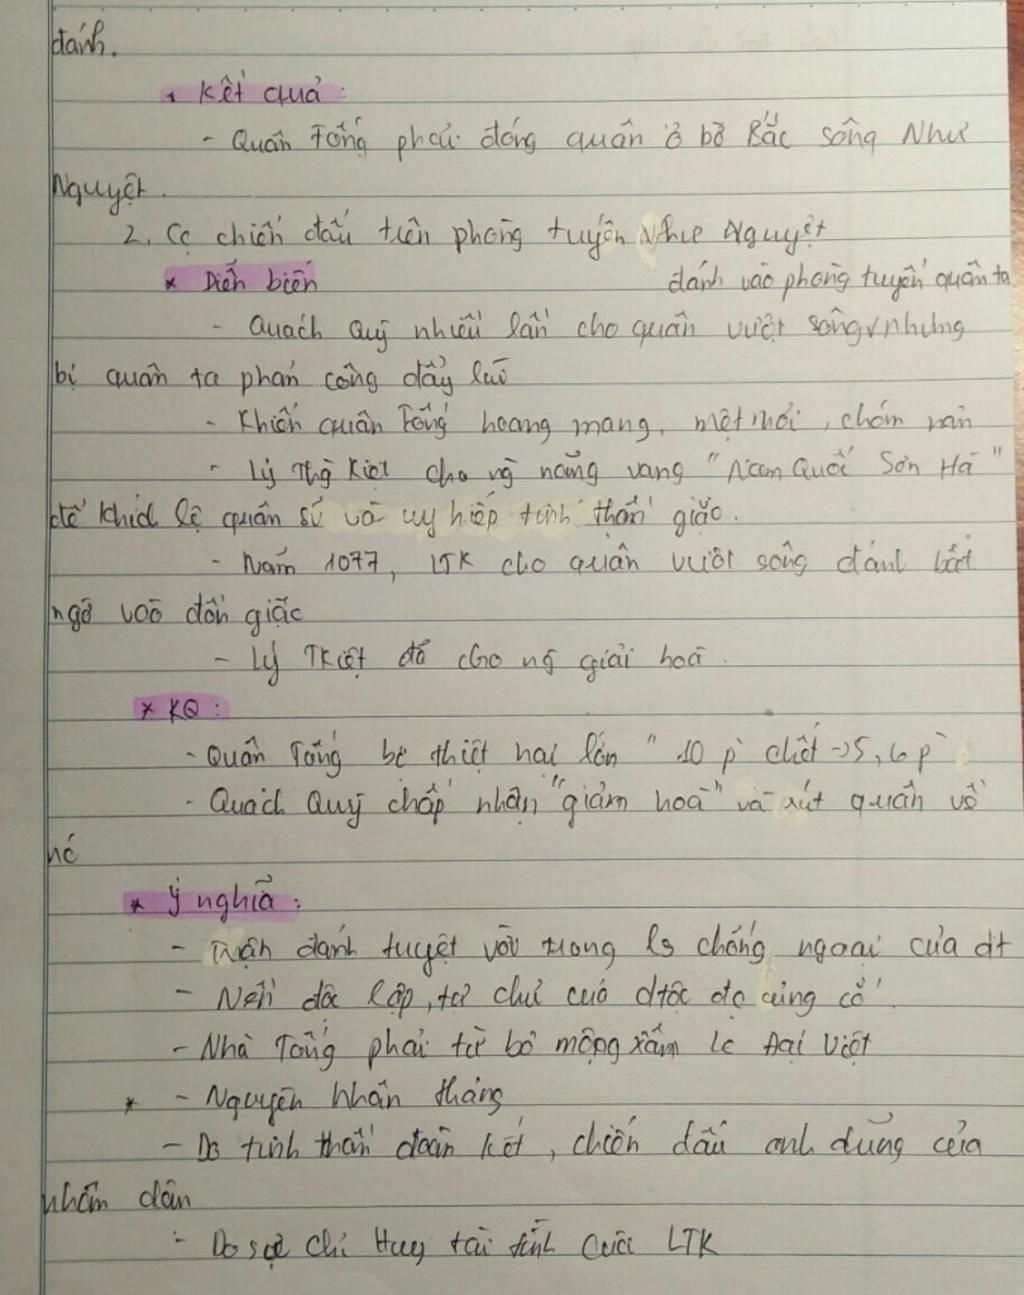 đánh.
* Kết quả:
- Quân Tống phải đóng quân ở bờ Bắc sông Như
Nguyệt.
2. Cc chiến đấu trên phòng tuyến Như Nguyệt
* Diễn biến
đánh vào phòng tuyến quân ta
- Quách Quỳ nhiều lần cho quân vượt sông, nhưng
bị quân ta phản công đẩy lùi
- Khiến quân Tống hoang mang, mệt mỏi, chán nản
- Lý Thg Kiệt cho ng năng vang "Nam Quốc Sơn Hà"
để khích lệ quân sĩ và uy hiếp tinh thần giặc.
- Năm 1077, LTK cho quân vượt sông đánh bất
ngờ vào đồn giặc
- Lý TKiệt đã cho ng giải hoà.
* KQ:
- Quân Tống bị thiệt hại lớn "10 p` chết → 5, 6 p`
- Quách Quỳ chấp nhận "giảm hoà" và rút quân về
nc
* Ý nghĩa:
- Trận đánh tuyệt vời trong ls chống ngoại của dt
- Nền độc lập, tự chủ của dtộc đc củng cố.
- Nhà Tống phải từ bỏ mộng xâm lc Đại Việt
* - Nguyên nhân thắng
- Do tinh thần đoàn kết, chiến đấu anh dũng của
nhân dân
- Do sự chỉ huy tài tình của LTK